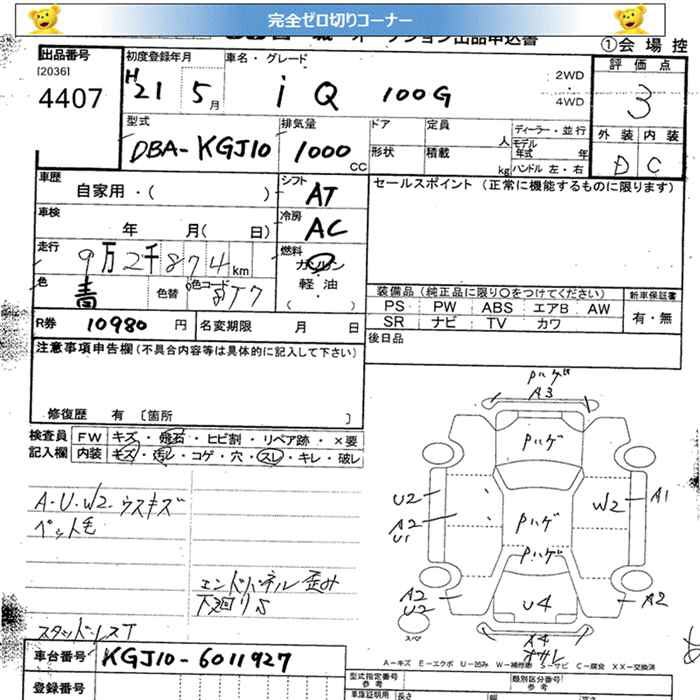 完全ゼロ切りコーナー
①会場控
出品番号
[2036]
4407
初度登録年月
H21 5月
車名・グレード
iQ 100G
2WD
・
4WD
評価点
3
外装 内装
D C
型式
DBA-KGJ10
排気量
1000CC
ドア
形状
定員
人
積載
kg
ディーラー・並行
モデル年式 年
ハンドル 左・右
車歴
自家用・( )
シフト
AT
セールスポイント(正常に機能するものに限ります)
車検
年 月( 日)
冷房
AC
走行
9万2千874km
燃料
ガソリン
軽油
( )
色
青
色替
色コード
8T7
装備品(純正品に限り○をつけてください)
新車保証書
PS PW ABS エアB AW
SR ナビ TV カワ
有・無
R券 10980円
名変期限 月 日
後日品
注意事項申告欄(不具合内容等は具体的に記入して下さい)
修復歴 有 〔箇所 〕
検査員
記入欄
FW キズ・飛石・ヒビ割・リペア跡・×要
内装 キズ・汚レ・コゲ・穴・スレ・キレ・破レ
A・U・W2・ウスキズ
ペット毛
エンドパネル歪み
下廻りS
スタッドレスT
Pハゲ
A3
Pハゲ
U2
A2
U1
W2
A1
Pハゲ
Pハゲ
A2
U2
U4
A2
スペア
A4
車台番号
KGJ10-6011927
A-キズ E-エクボ U-凹み W-補修跡 S-サビ C-腐食 XX-交換済
登録番号
型式指定番号
参考
類別区分番号
参考
車庫証明用
長さ
幅
高さ